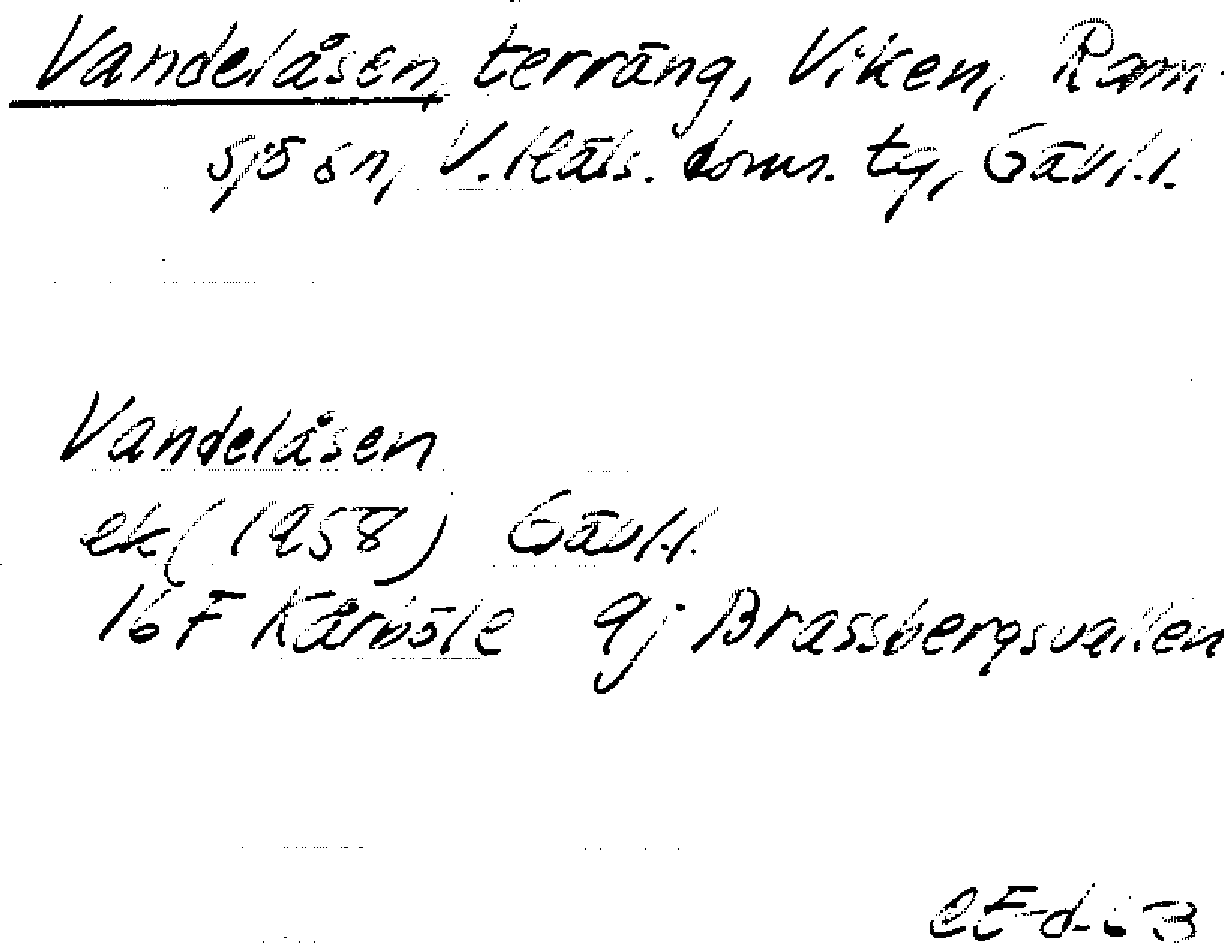 Vandelåsen, terräng, Viken, Ram-
sjö sn, V. Häls. doms. tg, Gävl.l.
Vandelåsen
ek (1958) Gävl.l.
16F Kårböle 9j Brassbergsvallen